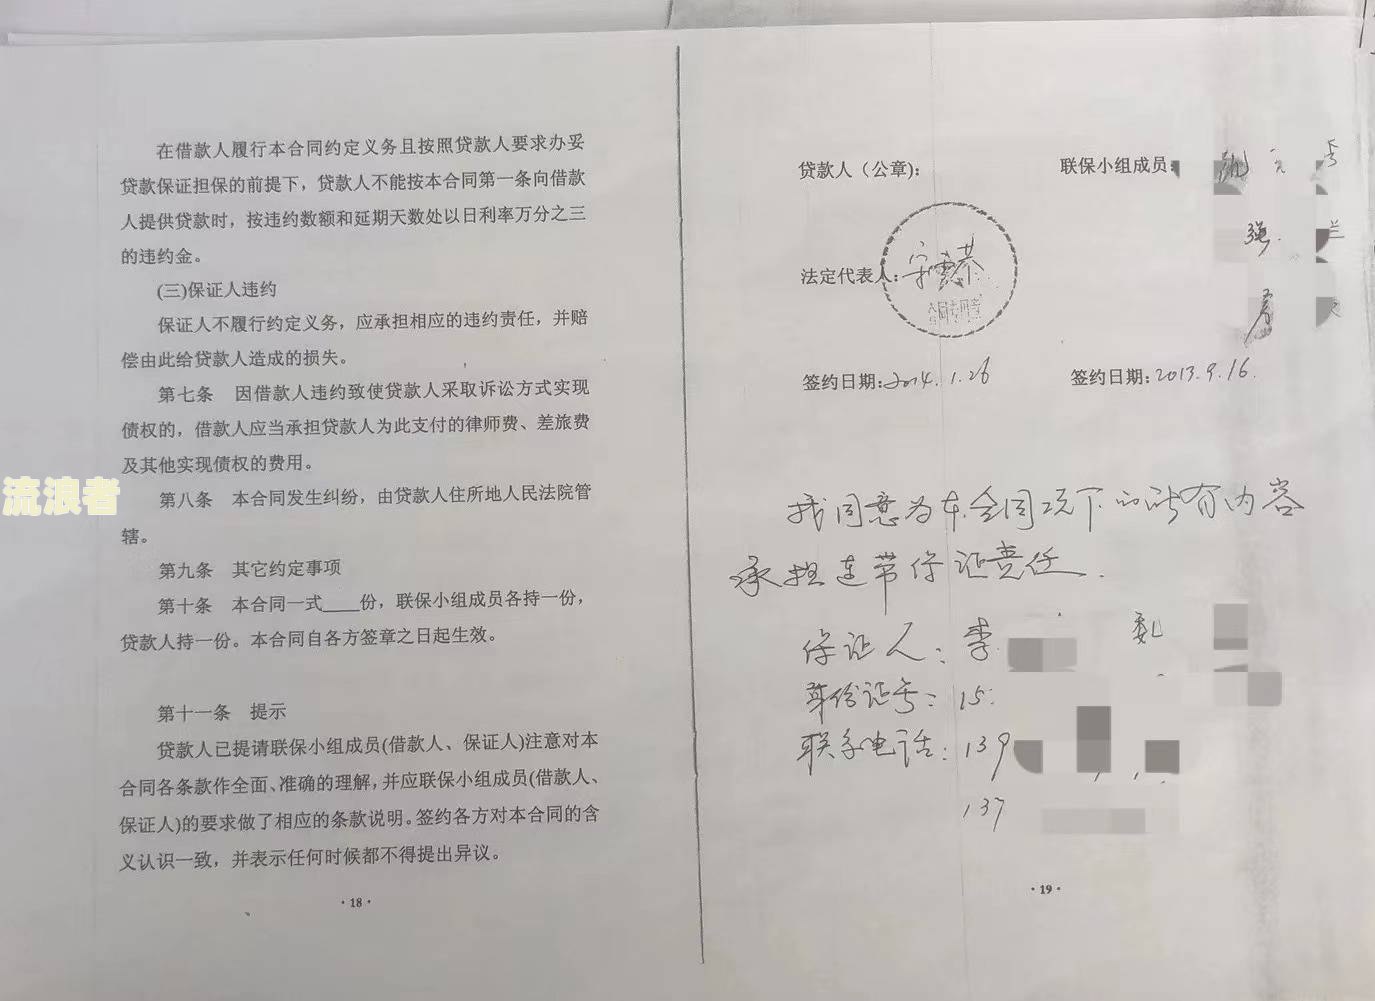 在借款人履行本合同约定义务且按照贷款人要求办妥
贷款保证担保的前提下，贷款人不能按本合同第一条向借款
人提供贷款时，按违约数额和延期天数处以日利率万分之三
的违约金。
(三)保证人违约
保证人不履行约定义务，应承担相应的违约责任，并赔
偿由此给贷款人造成的损失。
第七条　因借款人违约致使贷款人采取诉讼方式实现
债权的，借款人应当承担贷款人为此支付的律师费、差旅费
及其他实现债权的费用。
第八条　本合同发生纠纷，由贷款人住所地人民法院管
辖。
第九条　其它约定事项
第十条　本合同一式____份，联保小组成员各持一份，
贷款人持一份。本合同自各方签章之日起生效。
第十一条　提示
贷款人已提请联保小组成员(借款人、保证人)注意对本
合同各条款作全面、准确的理解，并应联保小组成员(借款人、
保证人)的要求做了相应的条款说明。签约各方对本合同的含
义认识一致，并表示任何时候都不得提出异议。
·18·
流浪者
贷款人（公章）：
联保小组成员：
强 兰
法定代表人：
合同专用章
签约日期：2014.1.26
签约日期：2013.9.16.
我同意为本合同项下的所有内容
承担连带保证责任.
保证人：李 魏
身份证号：15
联系电话：139
137
·19·